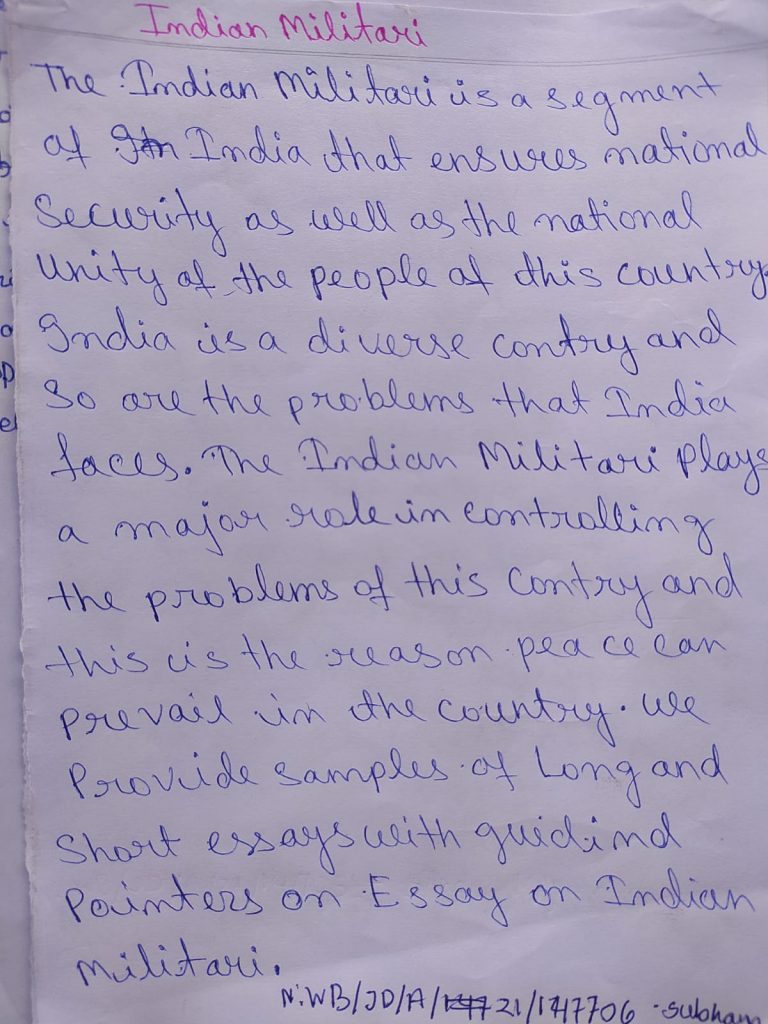 Indian Militari
The Indian Militari is a segment
of India that ensures national
Security as well as the national
Unity of the people of this country
India is a diverse contry and
So are the problems that India
faces. The Indian Militari plays
a major role in controlling
the problems of this Contry and
this is the reason peace can
prevail in the country. We
Provide samples of Long and
Short essays with guidind
Pointers on Essay on Indian
Militari.
N:WB/JD/A/21/1717706 - Subham